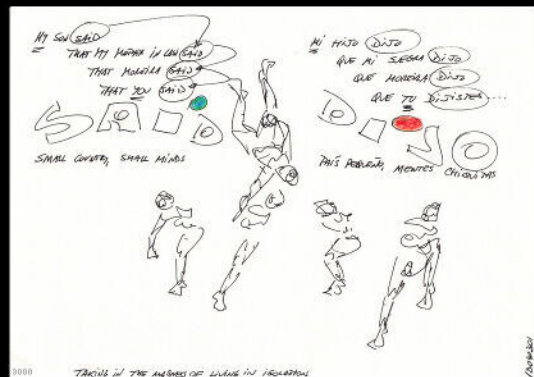 MY SON SAID
THAT MY MOTHER IN LAW SAID
THAT MOREIRA SAID
THAT YOU SAID
SAID
SMALL COUNTRY, SMALL MINDS
MI HIJO DIJO
QUE MI SUEGRA DIJO
QUE MOREIRA DIJO
QUE TU DIJISTES....
DIJO
PAÍS PEQUEÑO, MENTES CHIQUITAS
TAKING IN THE MADNESS OF LIVING IN ISOLATION